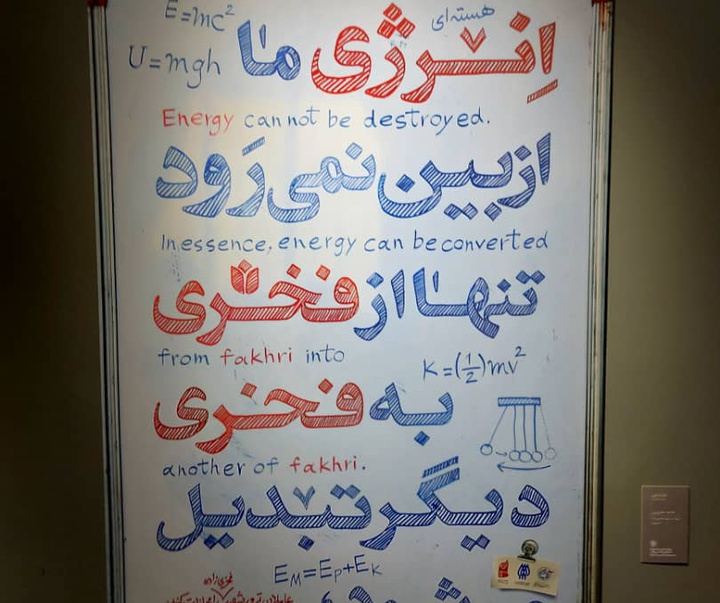 E=mc²
هسته‌ای
U=mgh
انرژی ما
Energy can not be destroyed.
از بین نمی‌رَود
In essence, energy can be converted
تنها از فخری
from fakhri into
K=(1/2)mv²
به فخری
another of fakhri.
دیگر تبدیل
E_M=E_P+E_K
فخری‌زاده